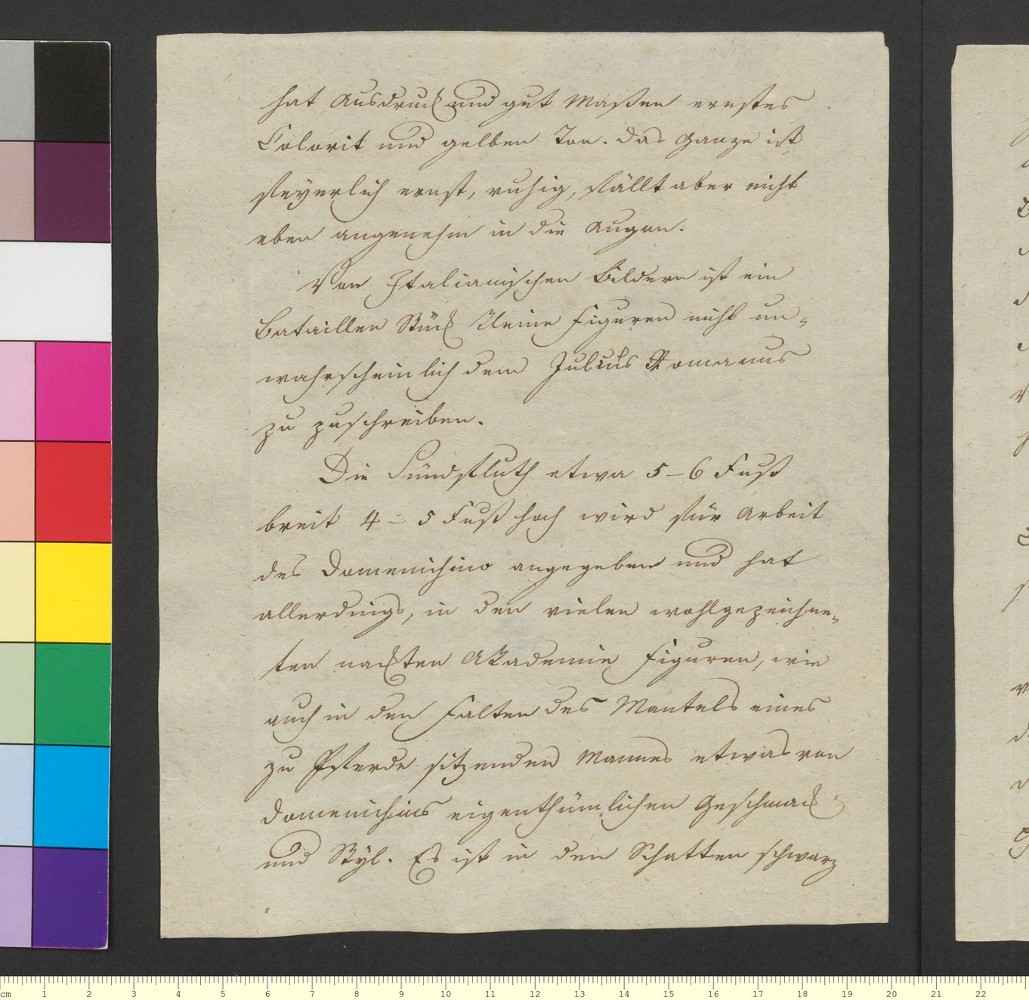 hat Ausdruck und gut Maßen ernstes
Colorit und gelben Ton. das Ganze ist
feyerlich ernst, ruhig, fällt aber nicht
eben angenehm in die Augen.
Von Italiänischen Bildern ist ein
Bataillen Stück kleine Figuren nicht un-
wahrscheinlich dem Julius Romanus
zu zuschreiben.
Die Sündfluth etwa 5-6 Fuß
breit 4-5 Fuß hoch wird für Arbeit
des Domenichino angegeben und hat
allerdings, in den vielen wohlgezeichne-
ten nackten Akademie Figuren, wie
auch in den Falten des Mantels eines
zu Pferde sitzenden Mannes etwas von
Domenichins eigenthümlichen Geschmack
und Styl. Es ist in den Schatten schwarz
cm 1 2 3 4 5 6 7 8 9 10 11 12 13 14 15 16 17 18 19 20 21 22